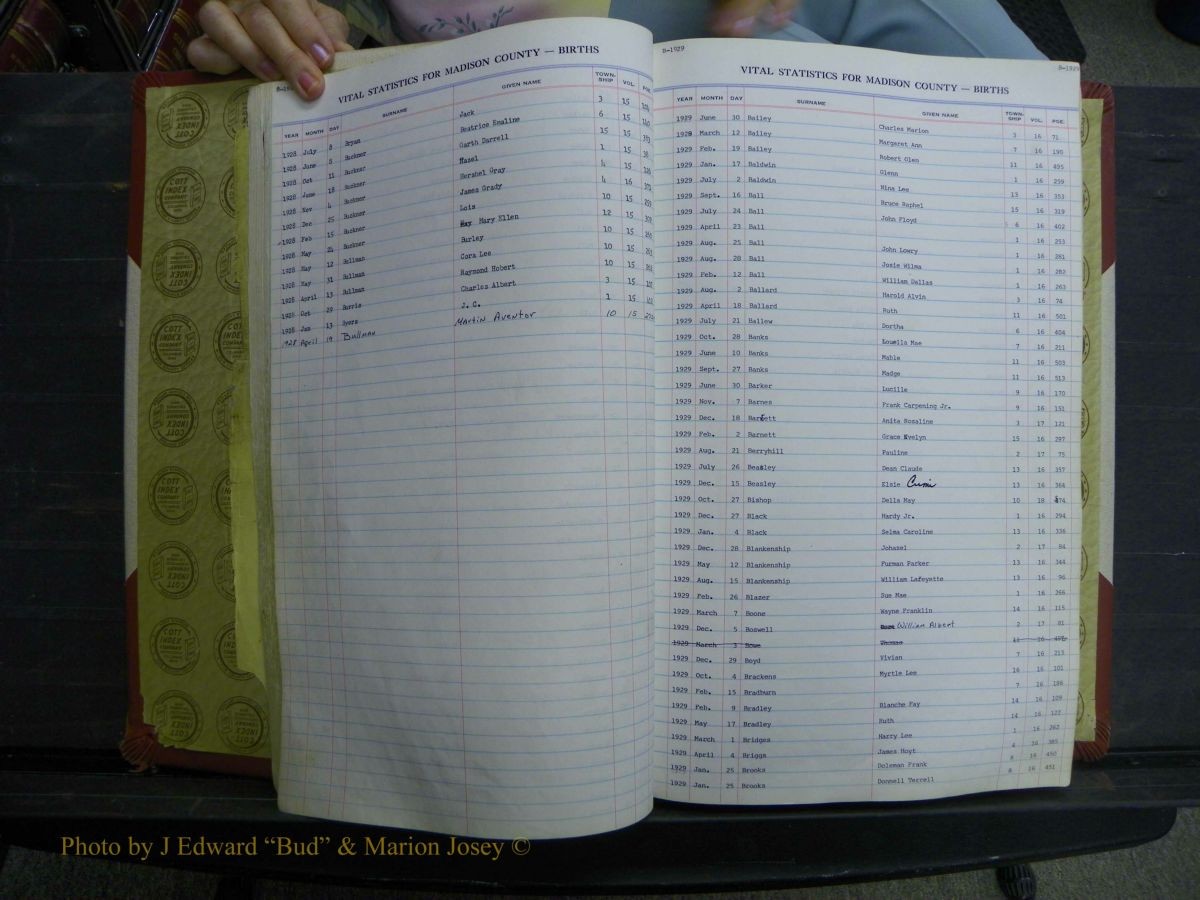 B-192
VITAL STATISTICS FOR MADISON COUNTY — BIRTHS
YEAR MONTH DAY SURNAME GIVEN NAME TOWN-SHIP VOL. PGE.
1928 July 8 Bryan Jack 3 15
1928 June 5 Buckner Beatrice Emaline 6 15
1928 Oct 11 Buckner Garth Darrell 15 15
1928 June 18 Buckner Hazel 1 15
1928 Nov 4 Buckner Hershel Gray 4 15
1928 Dec 25 Buckner James Grady 4 16
1928 Feb 15 Buckner Lois 10 15
1928 May 24 Buckner Mary Ellen 12 15
1928 May 12 Bullman Burley 10 15
1928 May 31 Bullman Cora Lee 10 15
1928 April 13 Bullman Raymond Hobert 10 15
1928 Oct 29 Burris Charles Albert 3 15
1928 Jan 13 Byers J. C. 1 15
1928 April 19 Bullman Martin Aventor 10 15
B-1929 B-1929
VITAL STATISTICS FOR MADISON COUNTY — BIRTHS
YEAR MONTH DAY SURNAME GIVEN NAME TOWN-SHIP VOL. PGE.
1929 June 30 Bailey Charles Marion 3 16 71
1928 March 12 Bailey Margaret Ann 7 16 190
1929 Feb. 19 Bailey Robert Glen 11 16 495
1929 Jan. 17 Baldwin Glenn 1 16 259
1929 July 2 Baldwin Nina Lee 13 16 353
1929 Sept. 16 Ball Bruce Raphel 15 16 319
1929 July 24 Ball John Floyd 6 16 402
1929 April 23 Ball 1 16 253
1929 Aug. 25 Ball John Lowry 1 16 281
1929 Aug. 28 Ball Josie Wilma 1 16 282
1929 Feb. 12 Ball William Dallas 1 16 263
1929 Aug. 2 Ballard Harold Alvin 3 16 74
1929 April 18 Ballard Ruth 11 16 501
1929 July 21 Ballew Dortha 6 16 404
1929 Oct. 28 Banks Louella Mae 7 16 211
1929 June 10 Banks Mable 11 16 503
1929 Sept. 27 Banks Madge 11 16 513
1929 June 30 Barker Lucille 9 16 170
1929 Nov. 7 Barnes Frank Carpening Jr. 9 16 151
1929 Dec. 18 Barnett Anita Rosaline 3 17 121
1929 Feb. 2 Barnett Grace Evelyn 15 16 297
1929 Aug. 21 Berryhill Pauline 2 17 75
1929 July 26 Beasley Dean Claude 13 16 357
1929 Dec. 15 Beasley Elsie 13 16 364
1929 Oct. 27 Bishop Della May 10 18 474
1929 Dec. 27 Black Hardy Jr. 1 16 294
1929 Jan. 4 Black Selma Caroline 13 16 336
1929 Dec. 28 Blankenship Johazel 2 17 84
1929 May 12 Blankenship Furman Parker 13 16 344
1929 Aug. 15 Blankenship William Lafeyatte 13 16 96
1929 Feb. 26 Blazer Sue Mae 1 16 266
1929 March 7 Boone Wayne Franklin 14 16 115
1929 Dec. 5 Boswell William Albert 2 17 81
1929 March 3 Bowe Thomas 11 16
1929 Dec. 29 Boyd Vivian 7 16 213
1929 Oct. 4 Brackens Myrtle Lee 16 16 101
1929 Feb. 15 Bradburn 7 16 186
1929 Feb. 9 Bradley Blanche Fay 14 16 109
1929 May 17 Bradley Ruth 14 16 122
1929 March 1 Bridges Harry Lee 1 16 262
1929 April 4 Briggs James Hoyt 4 16 385
1929 Jan. 25 Brooks Doleman Frank 8 16 450
1929 Jan. 25 Brooks Donnell Terrell 8 16 451
COTT INDEX COMPANY
Photo by J Edward “Bud” & Marion Josey ©